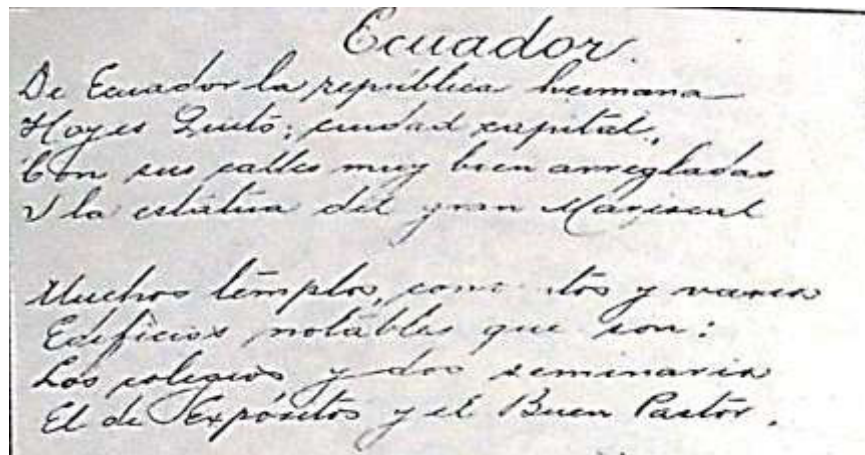 Ecuador.
De Ecuador la república hermana
Hoy es Quito; ciudad capital,
Con sus calles muy bien arregladas
Y la estátua del gran Mariscal
Muchos templos, conventos y varios
Edificios notables que son:
Los colegios y dos seminarios
El de Expósitos y el Buen Pastor.